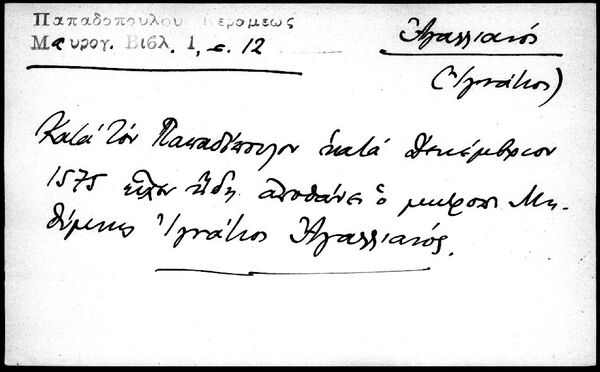 Παπαδοπούλου Κεραμέως
Μαυρογ. Βιβλ. 1, σ. 12
Ἀγαλλιανός
(Ἰγνάτιος)
Κατὰ τὸν Παπαδόπουλον κατὰ Δεκέμβριον
1575 εἶχεν ἤδη ἀποθάνει ὁ μητροπ. Μη-
θύμνης Ἰγνάτιος Ἀγαλλιανός.